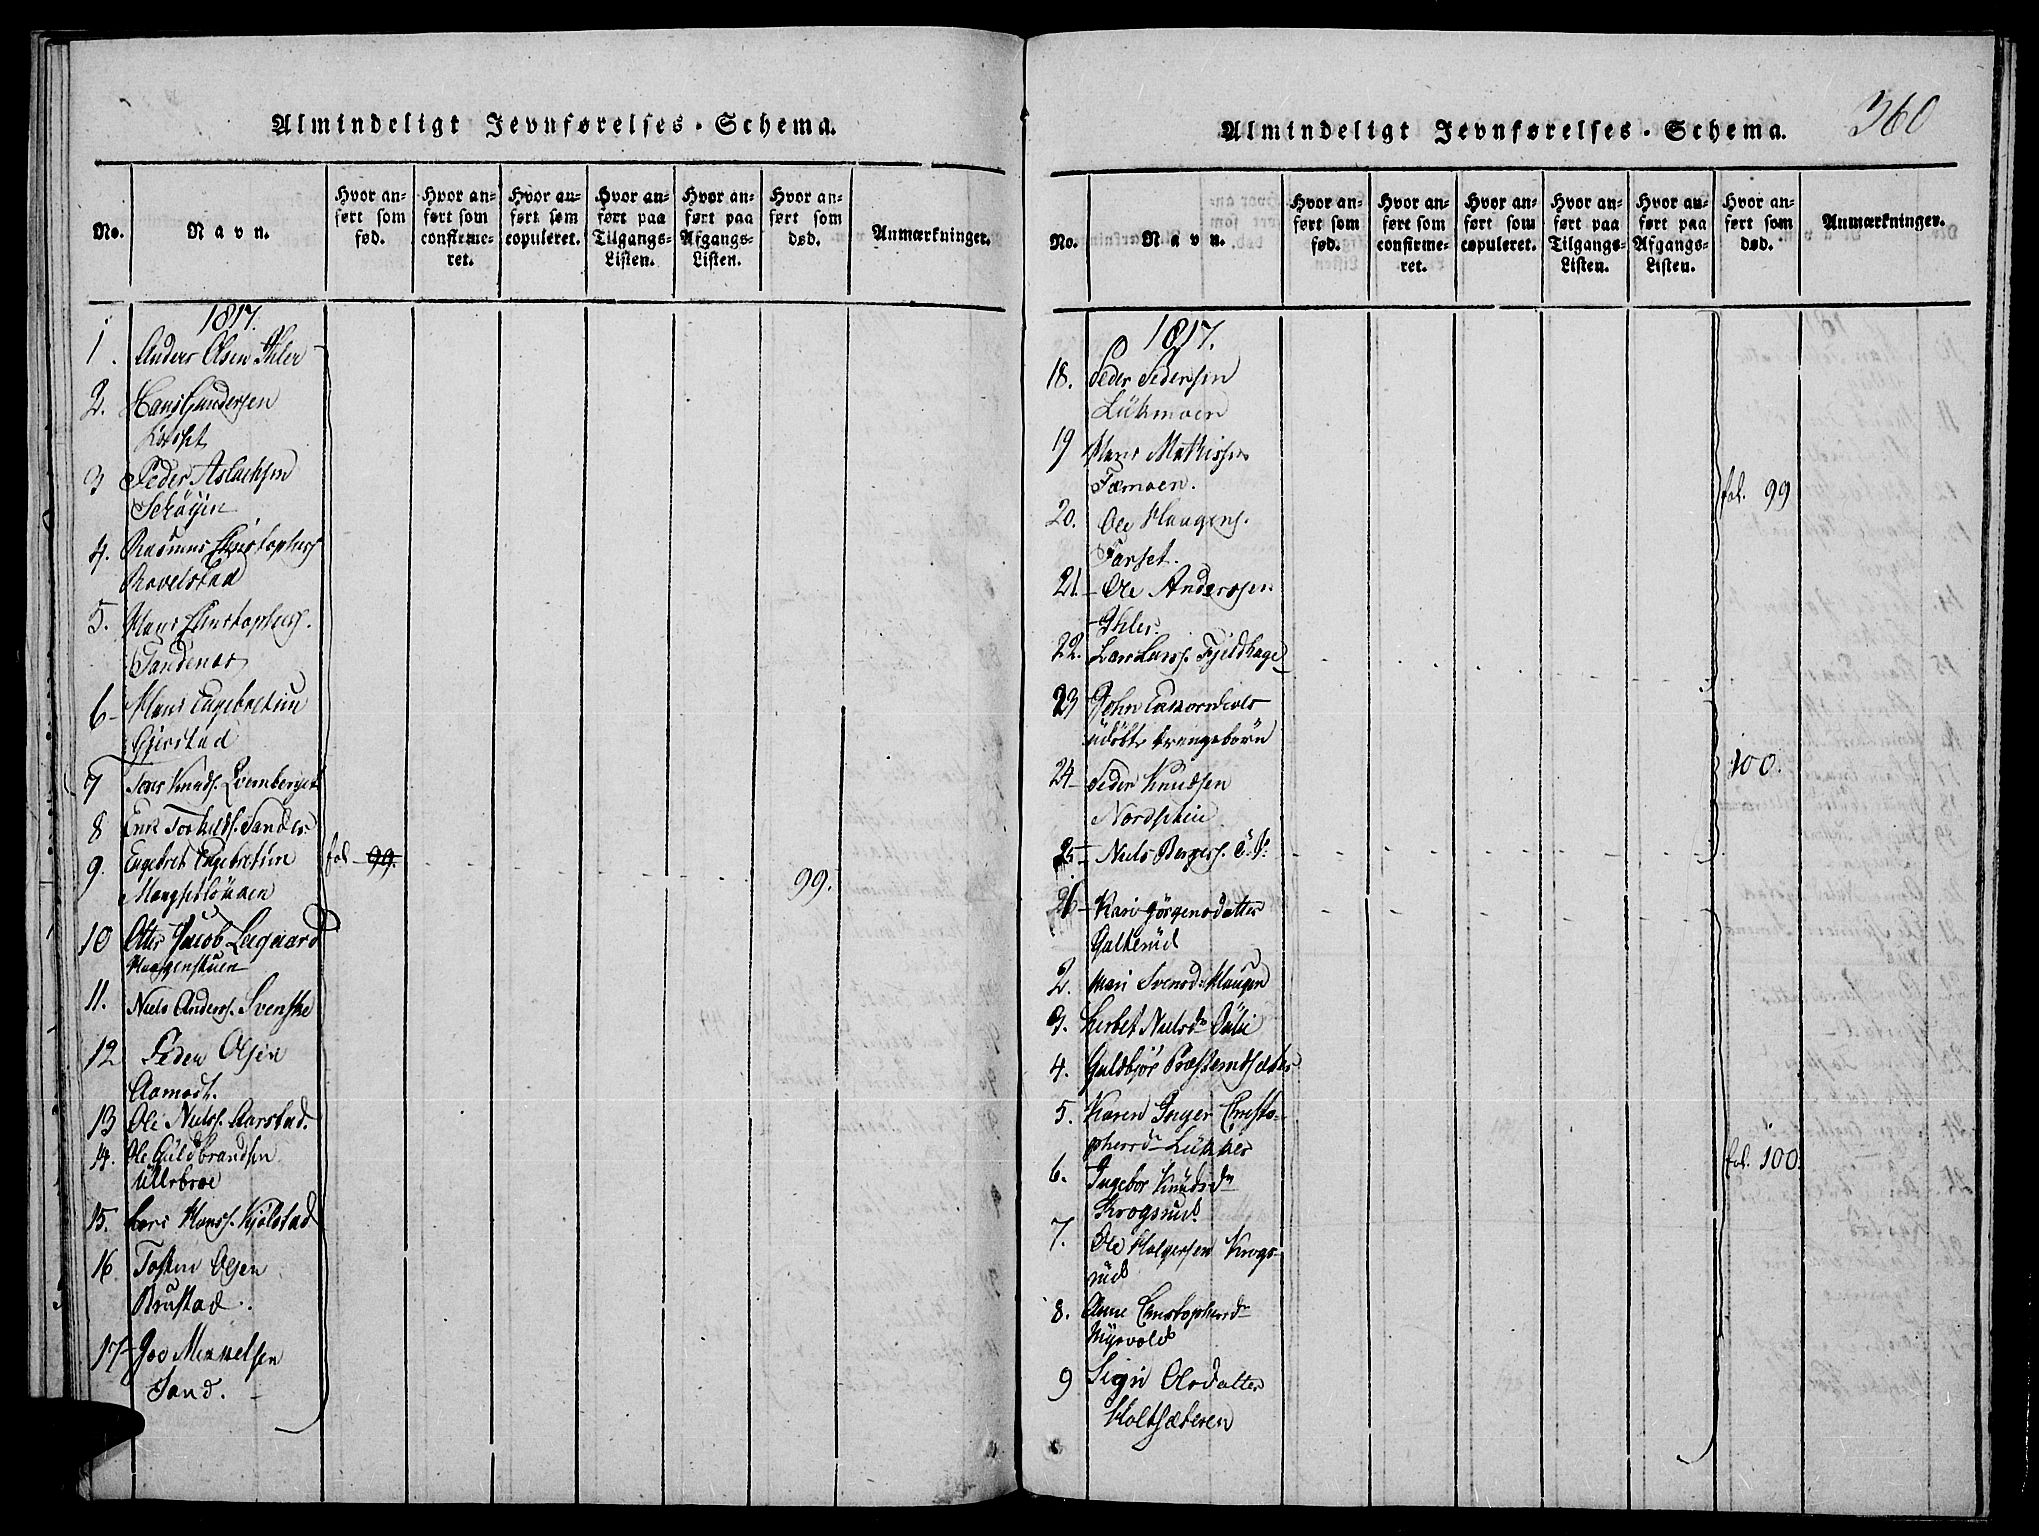 Almindeligt Jevnførelses-Schema.
No.
Navn.
Hvor an-
ført som
fød.
Hvor an-
ført som
confirme-
ret.
Hvor an-
ført som
copuleret.
Hvor an-
ført paa
Tilgangs-
Listen.
Hvor an-
ført paa
Afgangs-
Listen.
Hvor an-
ført som
død.
Anmærkninger.
1817.
1. Anders Olsen Ihler
2. Hans Gundersen
3 Peder Aslachsen
4. Rasmus Christophers
Ravelstad
5. Hans Christophers.
Sandenes
6 Hans Engebretsen
Gjerstad
7 Knuds.
8 Torkilds. Sander
9. Engebret Engebretsen fol 99. 99.
10 Jacob Lagaard
Haagenstuen
11. Niels Anders. Svenske
12 Peder Olsen
Aamodt.
13 Ole Niels. Aarstad.
14. Ole Guldbrandsen
Ullebroe
15. Lars Hans. Kjølstad
16 Tosten Olsen
Brustad.
17 Joo Mikkelsen
Sand.
Almindeligt Jevnførelses-Schema. 360
No.
Navn.
Hvor an-
ført som
fød.
Hvor an-
ført som
confirme-
ret.
Hvor an-
ført som
copuleret.
Hvor an-
ført paa
Tilgangs-
Listen.
Hvor an-
ført paa
Afgangs-
Listen.
Hvor an-
ført som
død.
Anmærkninger.
1817.
18. Peder Pedersen
Lükmoen
19 Hans Mathisen
Fæmoen. fol. 99
20. Ole Haagens.
Farset.
21 Ole Andersen
Ihler.
22. Lars Lars. Fjeldhage
23 John
udøbte drengebørn
24 Peder Knudsen 100.
25 Niels Berges.
26 Kari Jørgensdatter
Galterud
2. Mari Svensd. Haugen
3. Lisbet Nielsdr
4. Guldbjør
5. Karen Inger Christo-
phersdr Lükker
6. Ingebor Knudsdr fol. 100.
Krogsrud.
7. Ole Holgersen Krogs-
rud
8. Anne Christophersdr
Myrvold
9 Sigri Olsdatter
Holtsæteren